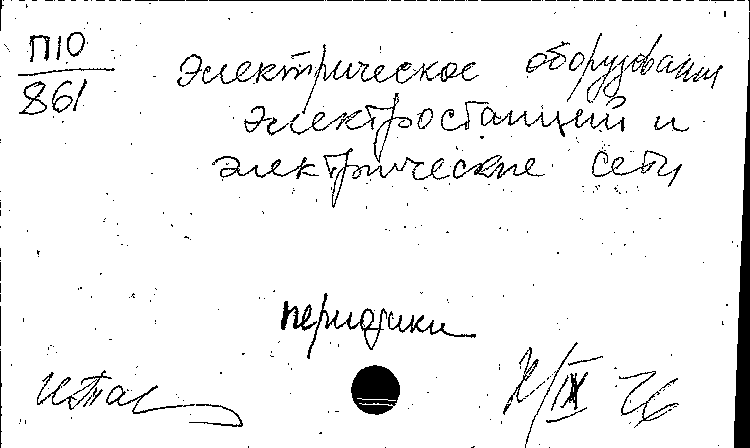 П10
861
Электрическое оборудование
электростанций и
электрические сети
периодики
IX 76